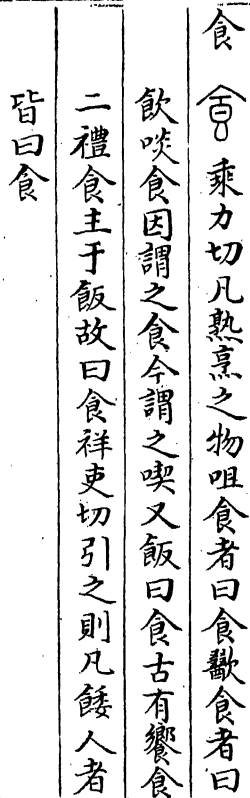 食 乘力切凡熟烹之物咀食者曰食歠食者曰
飲啖食因謂之食今謂之喫又飯曰食古有饗食
二禮食主于飯故曰食祥吏切引之則凡餧人者
皆曰食